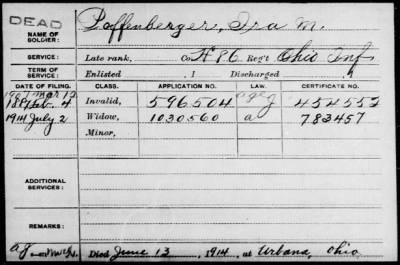 DEAD
NAME OF SOLDIER: Poffenberger, Ira M.
SERVICE: Late rank, Co. H 86 Reg't Ohio Inf
TERM OF SERVICE: Enlisted , 1 Discharged , 1
DATE OF FILING. CLASS. APPLICATION NO. LAW. CERTIFICATE NO.
1907 Mar 12
Feb. 4 Invalid, 596504 454552
1914 July 2 Widow, 1030560 a 783457
Minor,
ADDITIONAL SERVICES:
REMARKS:
Died June 13, 1914 at Urbana, Ohio